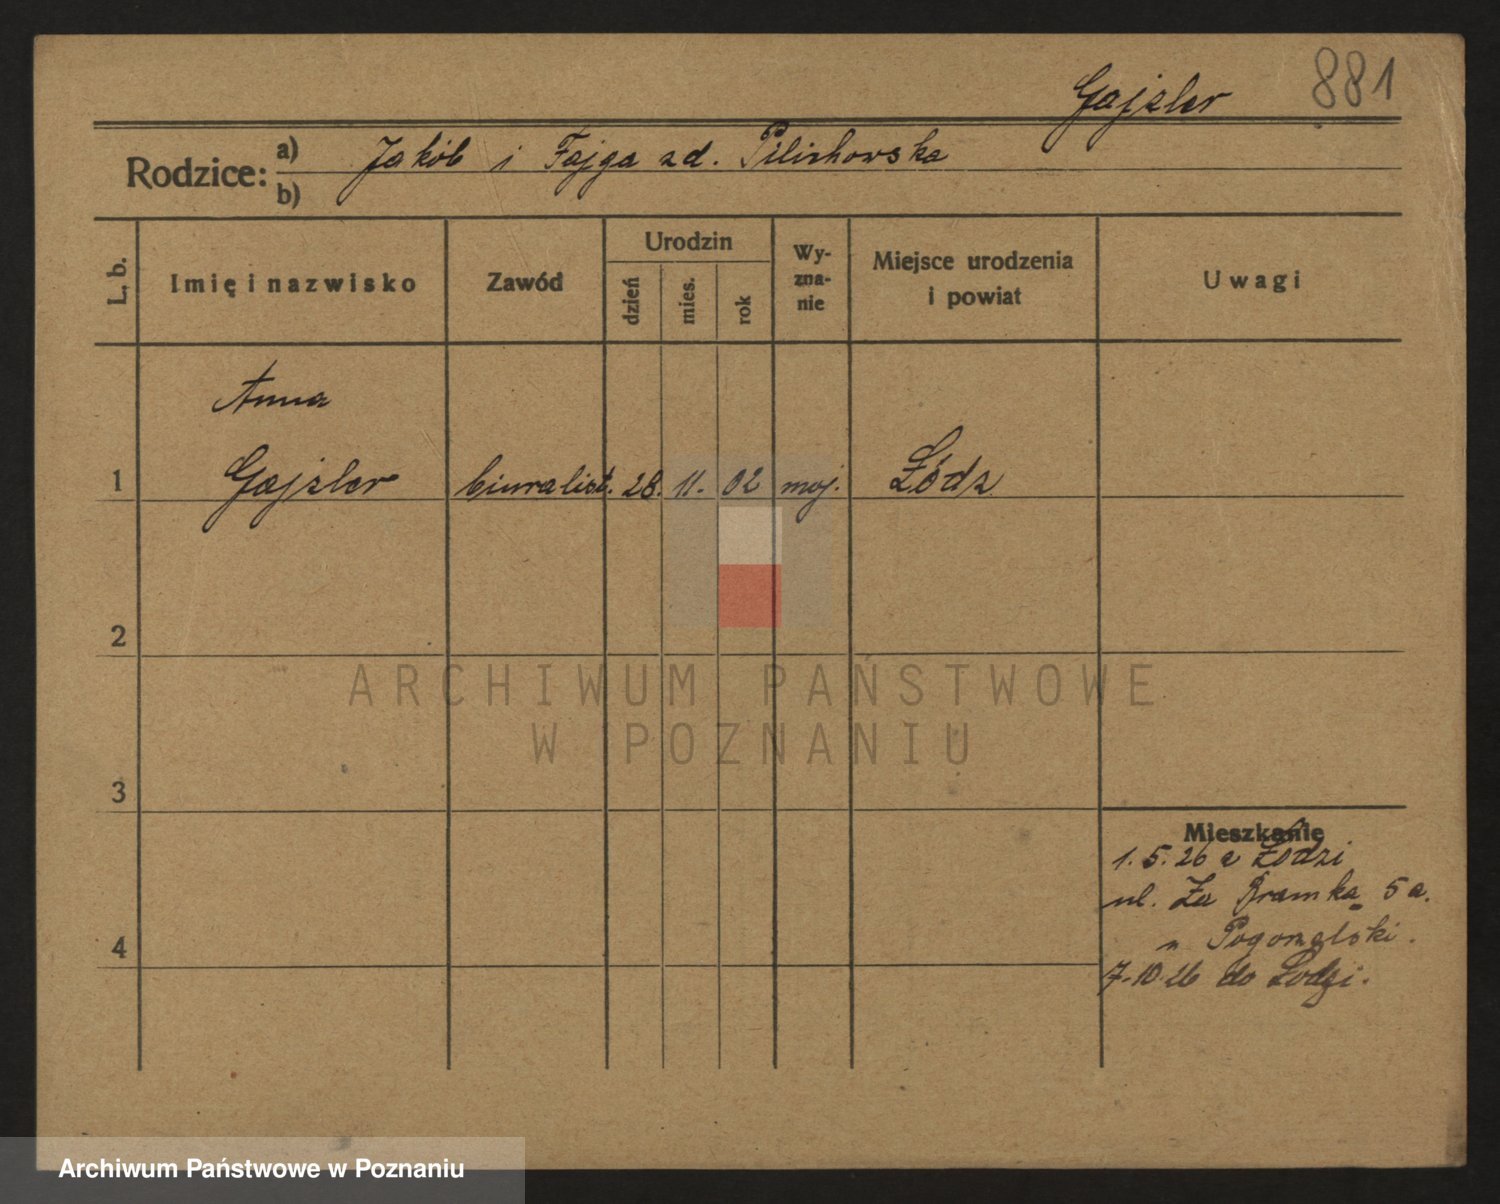 Gajzler 881
Rodzice: a) Jakób i Fajga zd.
b)
L. b. Imię i nazwisko Zawód Urodzin dzień mies. rok Wyznanie Miejsce urodzenia i powiat Uwagi
Anna
1 Gajzler biuralist. 28. 11. 02 moj. Łódz
2
ARCHIWUM PAŃSTWOWE
W POZNANIU
3
Mieszkanie
1. 5. 26 z Łodzi
ul. Za Bramką 5 a.
4
7-10.26 do Łodzi.
Archiwum Państwowe w Poznaniu